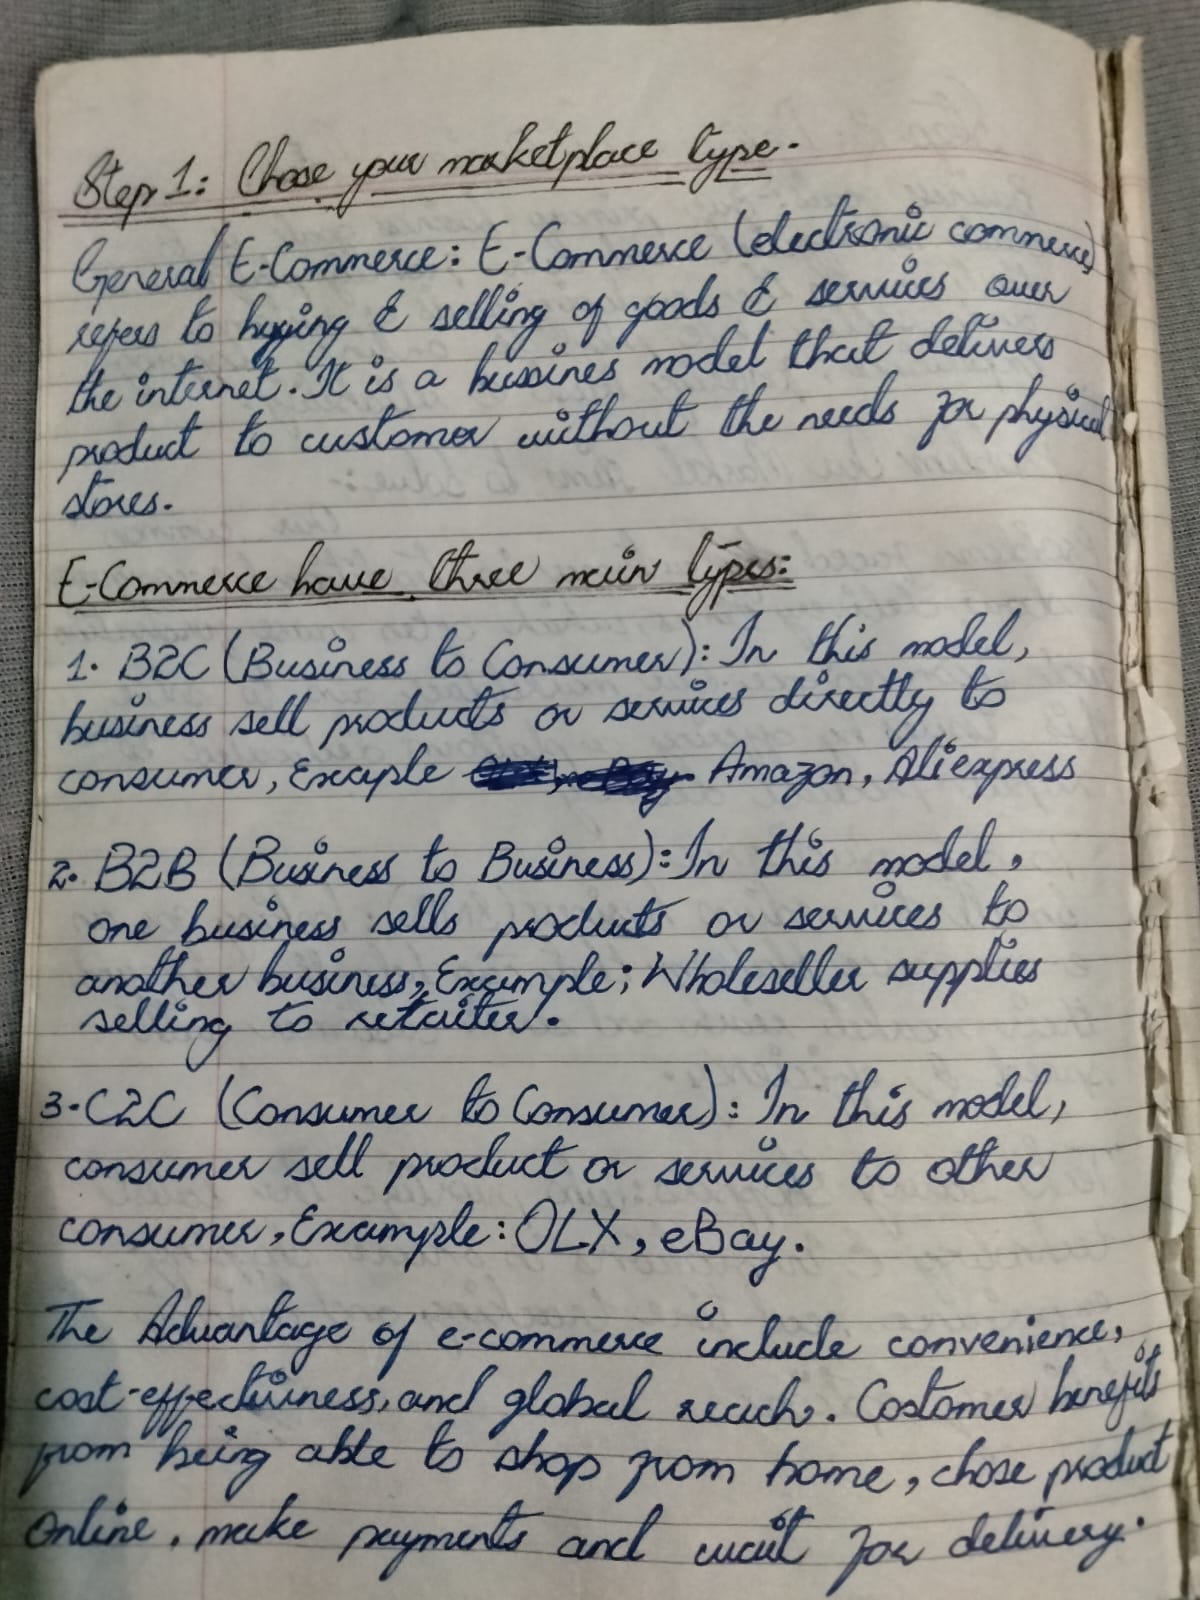 Step 1: Chose your marketplace type.
General E-Commerce: E-Commerce (electronic commerce)
refers to buying & selling of goods & services over
the internet. It is a bussines model that delivers
product to customer without the needs for physical
stores.
E-Commerce have three main types:
1. B2C (Business to Consumer): In this model,
business sell products or services directly to
consumer, Exaple Amazon, Aliexpress
2. B2B (Business to Business): In this model,
one business sells products or services to
another business, Example; Wholeseller supplies
selling to retailer.
3. C2C (Consumer to Consumer): In this model,
consumer sell product or services to other
consumer, Example: OLX, eBay.
The Advantage of e-commerce include convenience,
cost-effectiveness, and global reach. Costomer benefits
from being able to shop from home, chose product
Online, make payments and wait for delivery.